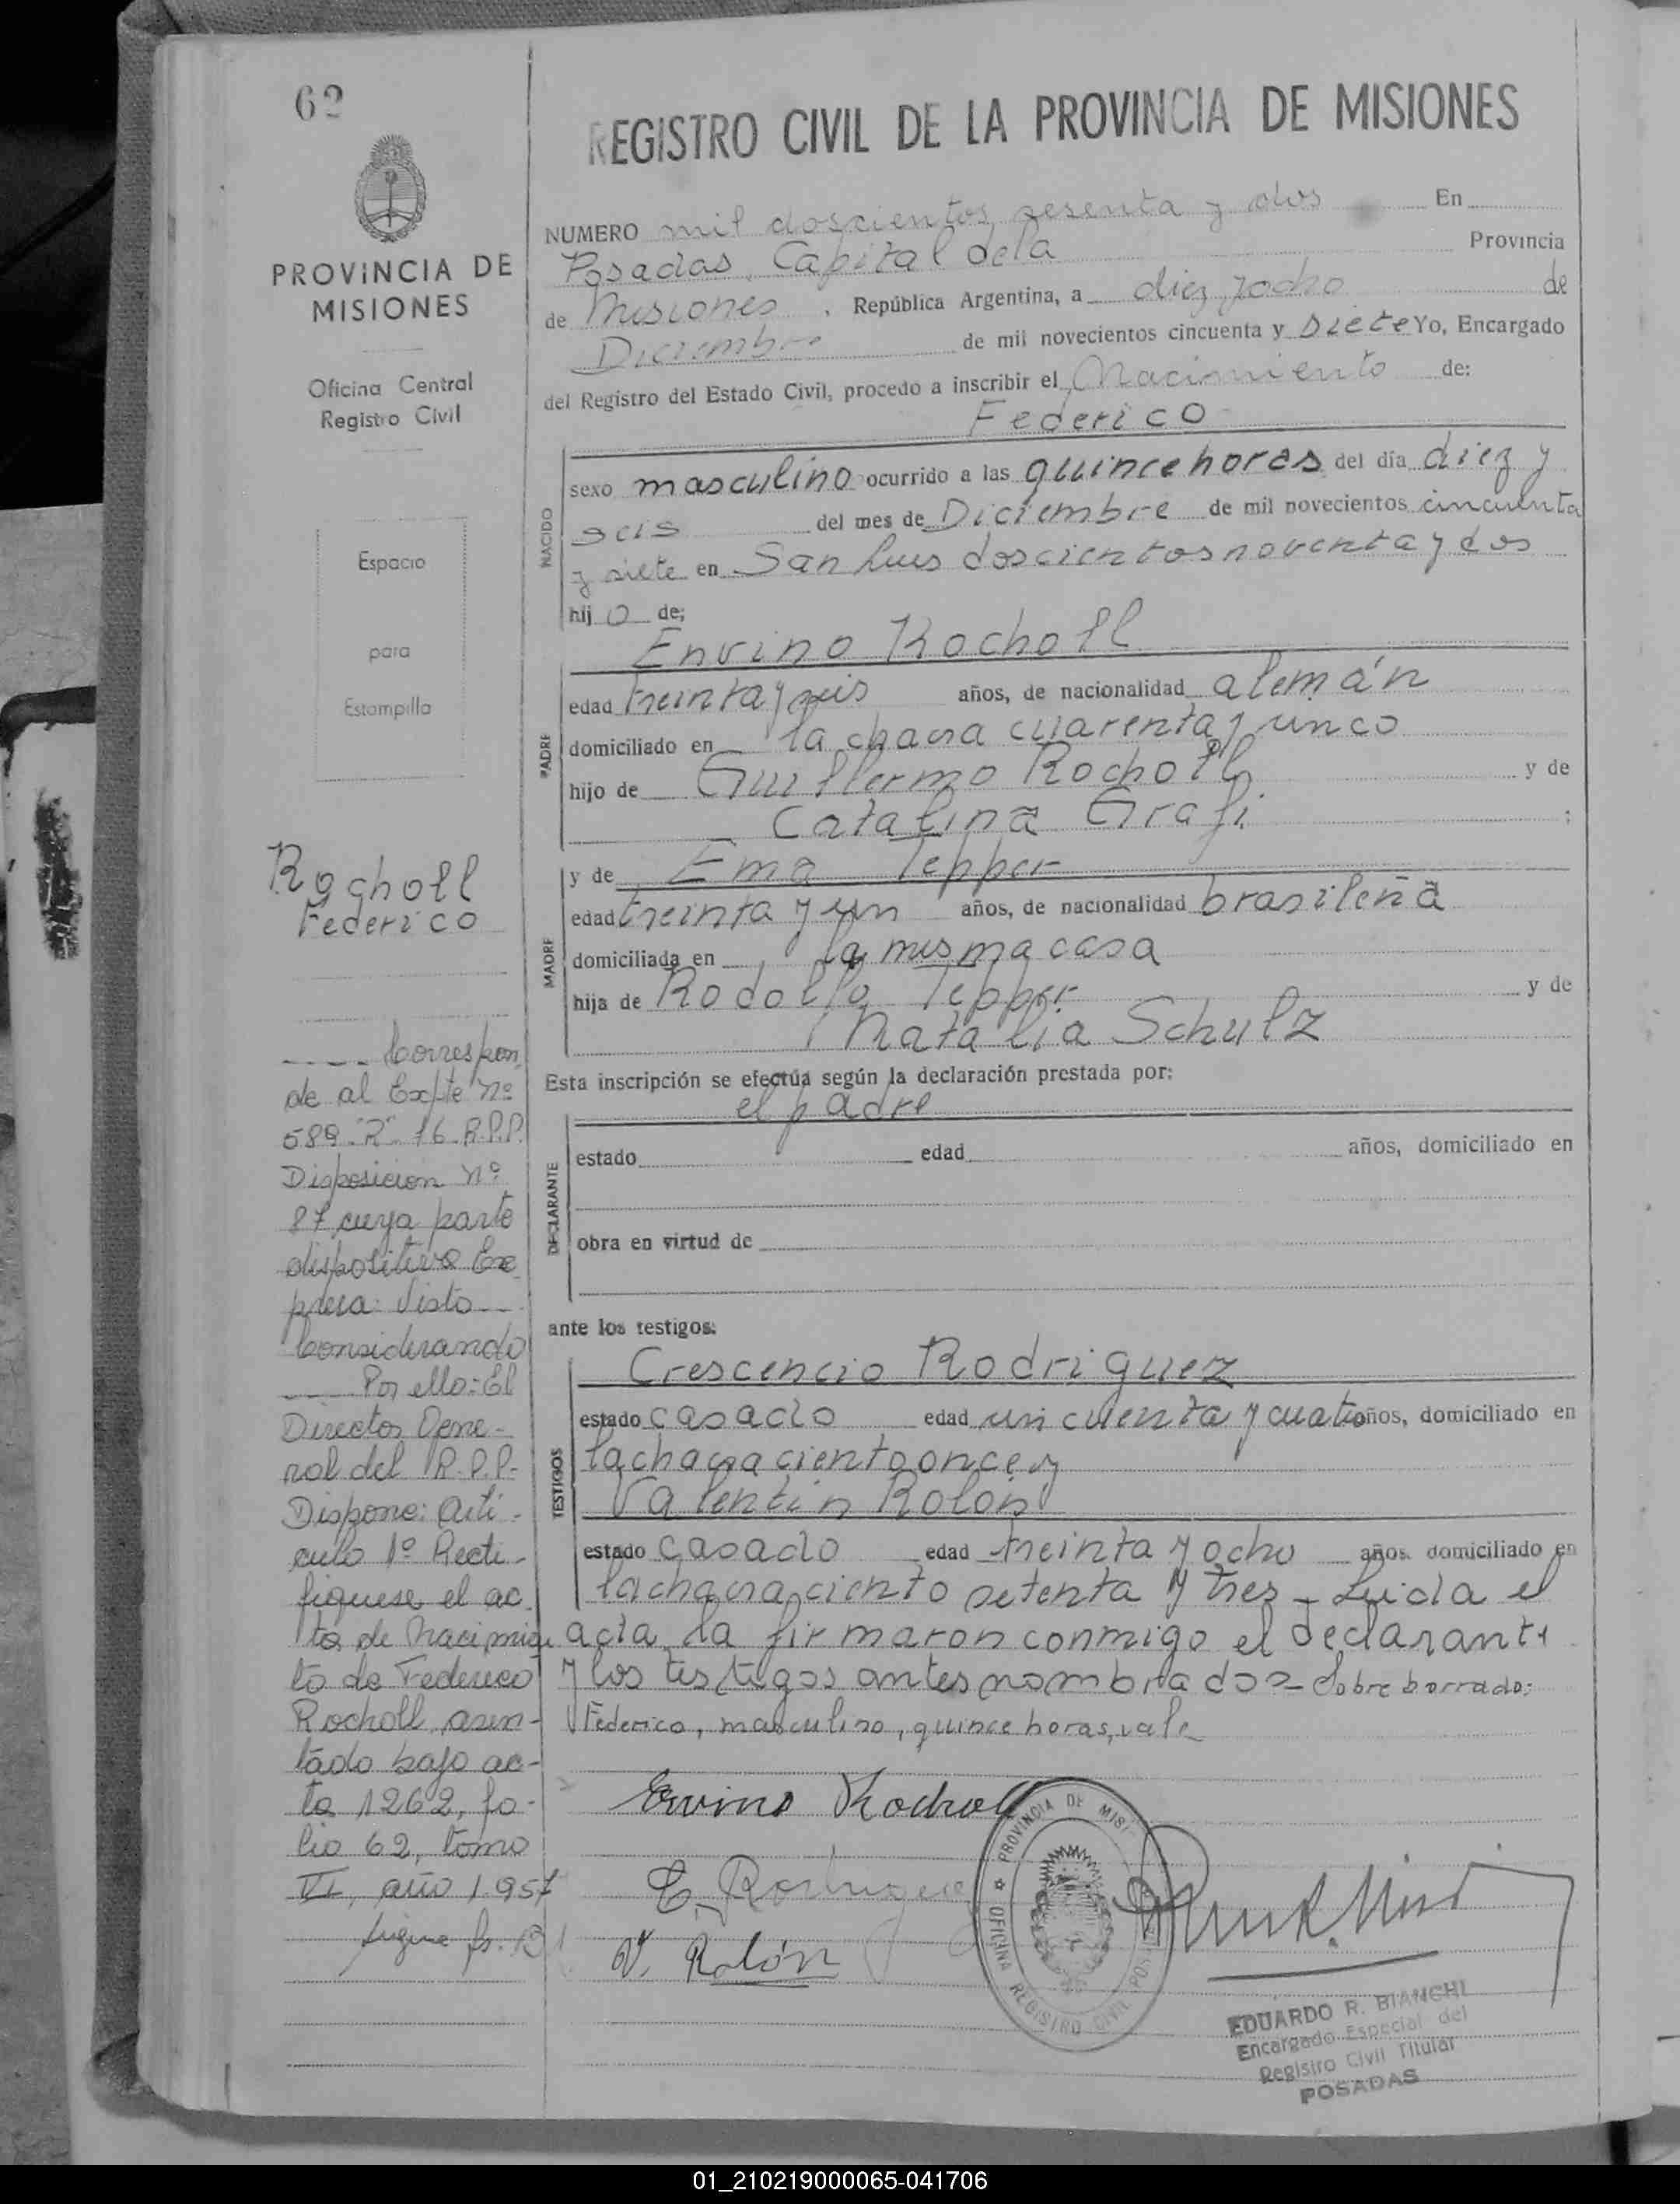 62
PROVINCIA DE
MISIONES
Oficina Central
Registro Civil
Espacio
para
Estampilla
Rocholl
Federico
Correspon
de al Expte nº
589-"R"-16-R.P.P.
Disposicion nº
87 cuya parte
dispositiva Ex
presa: Visto
Considerando
Por ello: El
Director Gene-
ral del R.P.P.
Dispone: Arti-
culo 1º Recti-
fiquese el ac
ta de Nacimien
to de Federico
Rocholl, asen-
tádo bajo ac-
ta 1262, fo-
lio 62, tomo
VI, año 1957
sigue fs.
REGISTRO CIVIL DE LA PROVINCIA DE MISIONES
NUMERO mil doscientos sesenta y dos En
Posadas, Capital dela Provincia
de Misiones, República Argentina, a diez y ocho de
Diciembre de mil novecientos cincuenta y siete Yo, Encargado
del Registro del Estado Civil, procedo a inscribir el Nacimiento de:
Federico
NACIDO
sexo masculino ocurrido a las quince horas del día diez y
seis del mes de Diciembre de mil novecientos cincuenta
y siete en San Luis doscientos noventa y dos
hijo de:
Envino Rocholl
PADRE
edad treinta y seis años, de nacionalidad alemán
domiciliado en la chacra cuarenta y unco
hijo de Guillermo Rocholl y de
Catalina Grafi ;
MADRE
y de Ema Tepper
edad treinta y un años, de nacionalidad brasileña
domiciliada en la misma casa
hija de Rodolfo Tepper y de
Natalia Schulz
Esta inscripción se efectúa según la declaración prestada por:
el padre
DECLARANTE
estado edad años, domiciliado en
obra en virtud de
ante los testigos:
Crescencio Rodriguez
TESTIGOS
estado casado edad cincuenta y cuatro años, domiciliado en
la chacra ciento once y
Valentin Rolón
estado casado edad treinta y ocho años, domiciliado en
la chacra ciento setenta y tres - Leida el
acta, la firmaron conmigo el declarante
y los testigos antes nombrados - Sobre borrado:
Federico, masculino, quince horas, vale
Ervino Rocholl
E. Rodriguez
V. Rolón
PROVINCIA DE MISI
OFICINA REGISTRO CIVIL POS
EDUARDO R. BIANCHI
Encargado Especial del
Registro Civil Titular
POSADAS
01_210219000065-041706